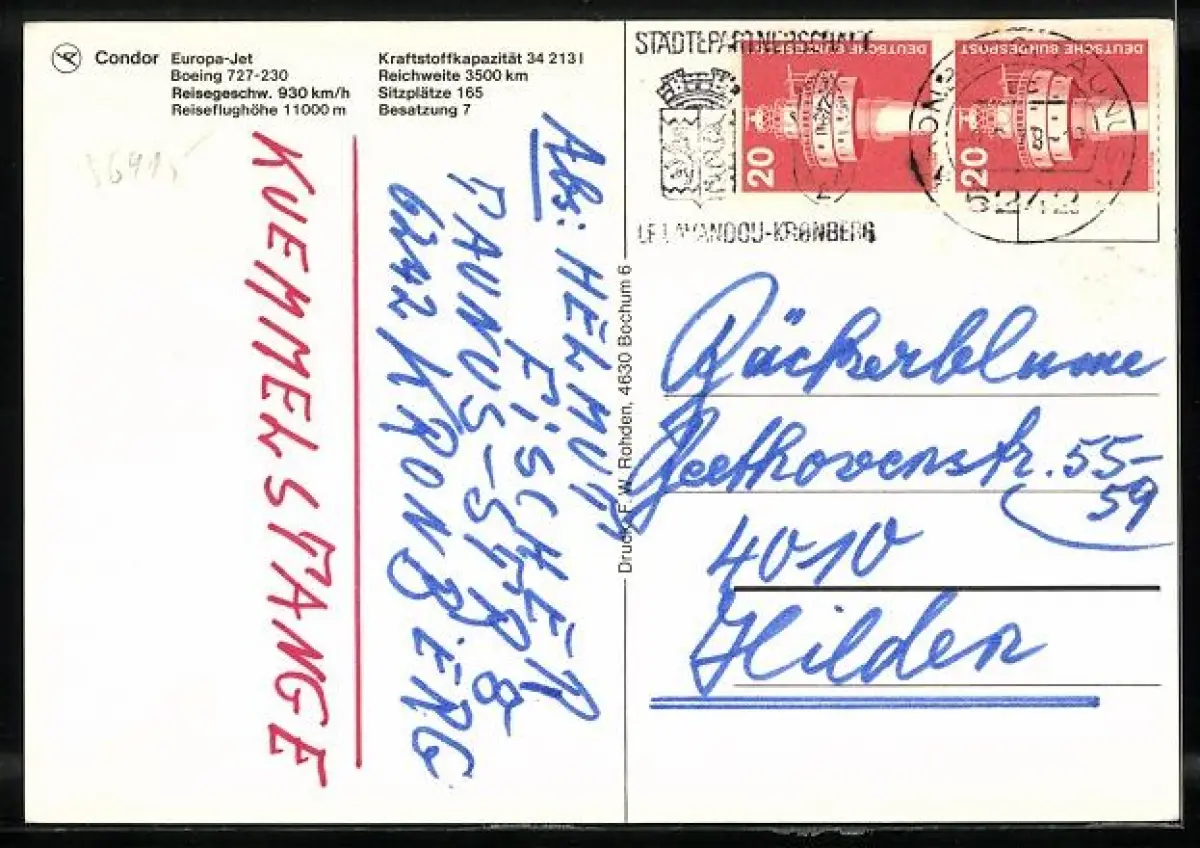 Condor Europa-Jet
Boeing 727-230
Reisegeschw. 930 km/h
Reiseflughöhe 11000 m
Kraftstoffkapazität 34 213 l
Reichweite 3500 km
Sitzplätze 165
Besatzung 7
KUEMMELSTANGE
Abs: HELMUT
FISCHER
TAUNUS-STR. 8
6242 KRONBERG
Druck: F. W. Rohden, 4630 Bochum 6
STÄDTEPARTNERSCHAFT
LE LAVANDOU-KRONBERG
DEUTSCHE BUNDESPOST
20
DEUTSCHE BUNDESPOST
20
Bäckerblume
Beethovenstr. 55-
59
4010
Hilden